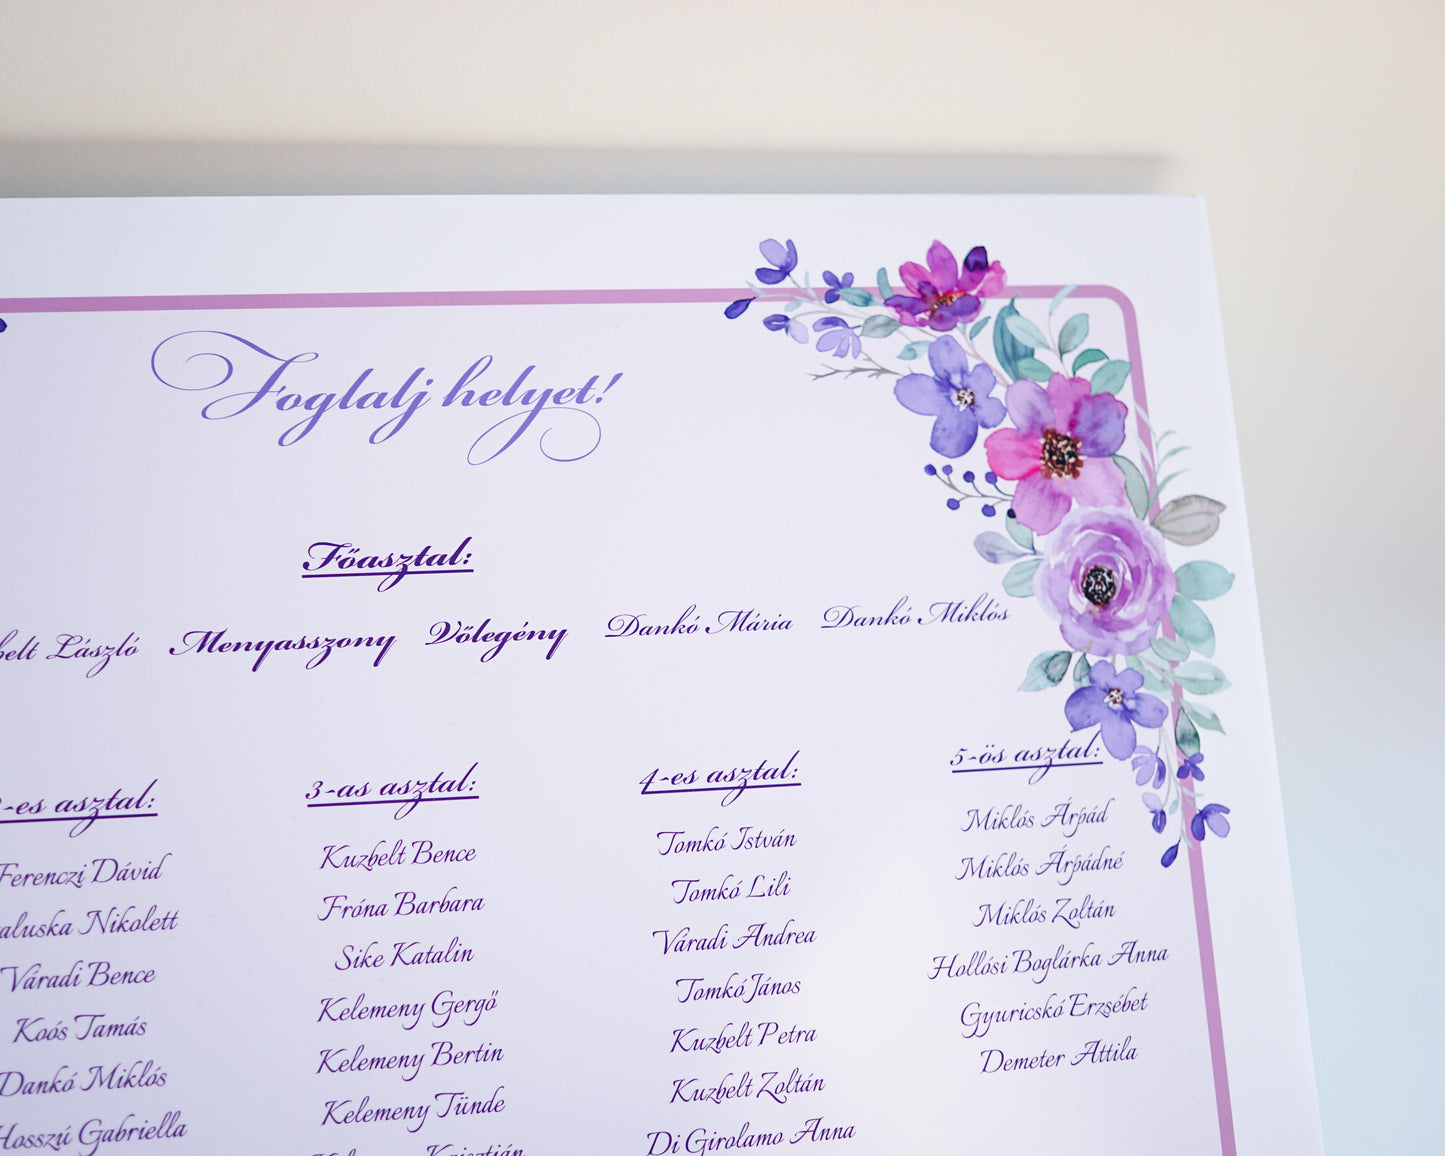 Foglalj helyet!
Főasztal:
László Menyasszony Vőlegény Dankó Mária Dankó Miklós
-es asztal:
Ferenczi Dávid
Nikolett
Váradi Bence
Koós Tamás
Dankó Miklós
Hosszú Gabriella
3-as asztal:
Kuzbelt Bence
Fróna Barbara
Sike Katalin
Kelemeny Gergő
Kelemeny Bertin
Kelemeny Tünde
4-es asztal:
Tomkó István
Tomkó Lili
Váradi Andrea
Tomkó János
Kuzbelt Petra
Kuzbelt Zoltán
Di Girolamo Anna
5-ös asztal:
Miklós Árpád
Miklós Árpádné
Miklós Zoltán
Hollósi Boglárka Anna
Gyuricskó Erzsébet
Demeter Attila